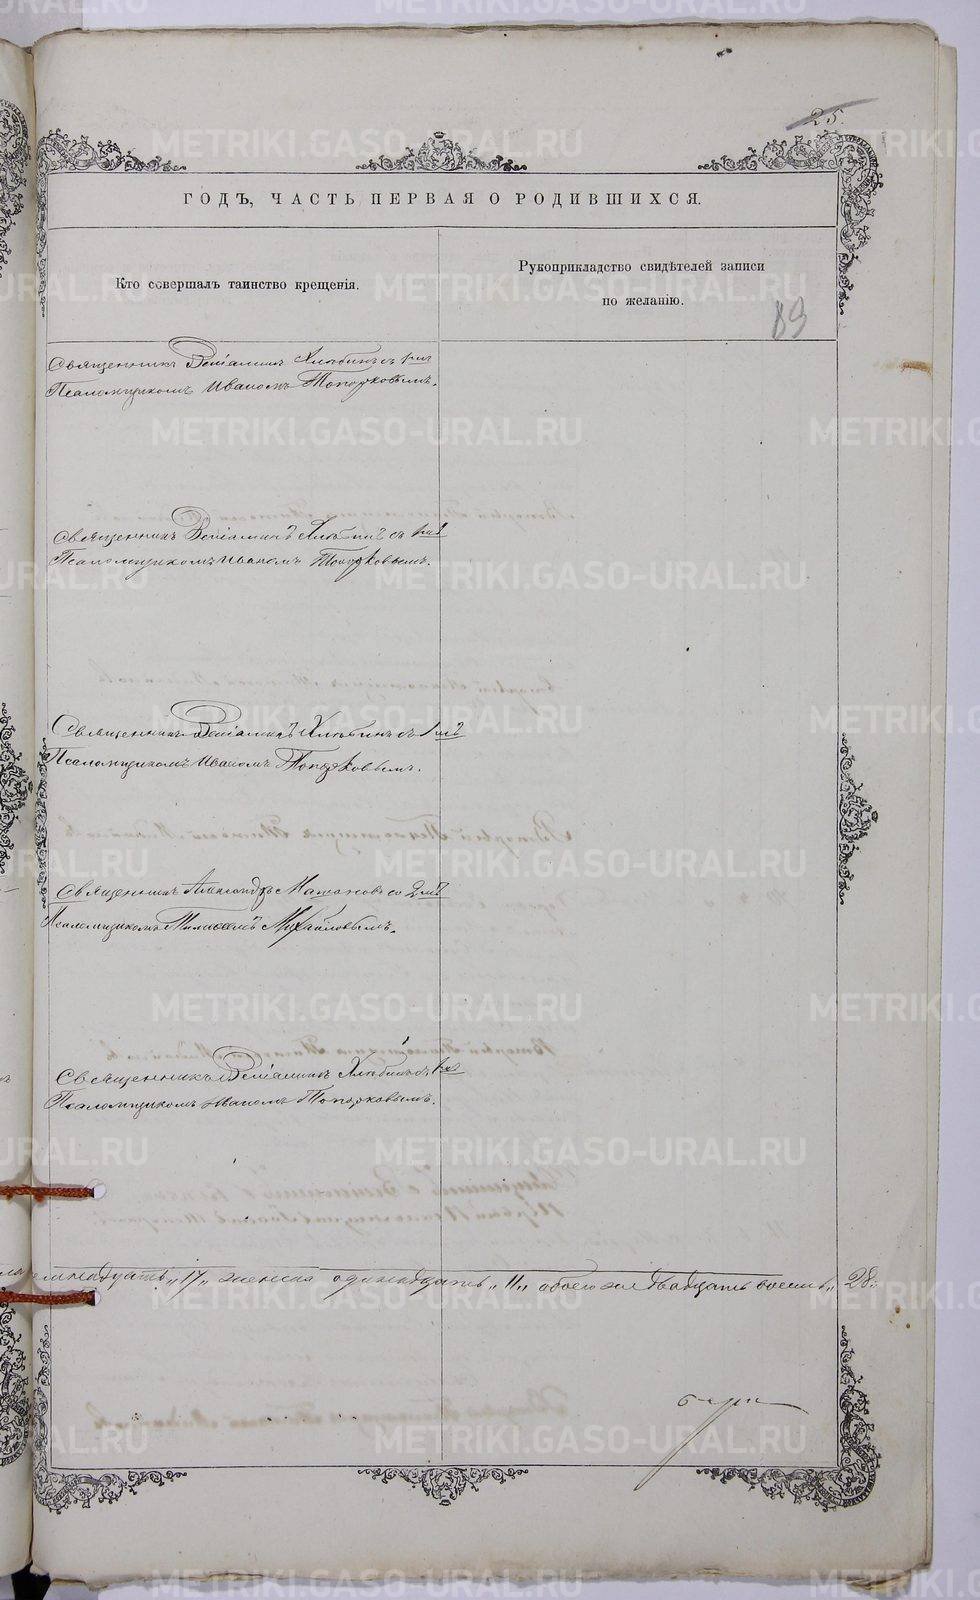 25.
ГОДЪ, ЧАСТЬ ПЕРВАЯ О РОДИВШИХСЯ.
Кто совершалъ таинство крещенія.
Рукоприкладство свидѣтелей записи
по желанію.
89
Священникъ Веніаминъ Хлѣбинъ съ 1мъ
Псаломщикомъ Иваномъ Топорковымъ.
Священникъ Веніаминъ Хлѣбинъ съ 1мъ
Псаломщикомъ Иваномъ Топорковымъ.
Священникъ Веніаминъ Хлѣбинъ съ 1мъ
Псаломщикомъ Иваномъ Топорковымъ.
Священникъ Александръ Мажановъ со 2мъ
Псаломщикомъ Михайловымъ.
Священникъ Веніаминъ Хлѣбинъ съ 1мъ
Псаломщикомъ Иваномъ Топорковымъ.
емнадцать „17„ женска одинадцать „11„ обоего пола двадцать восемь „28„
METRIKI.GASO-URAL.RU